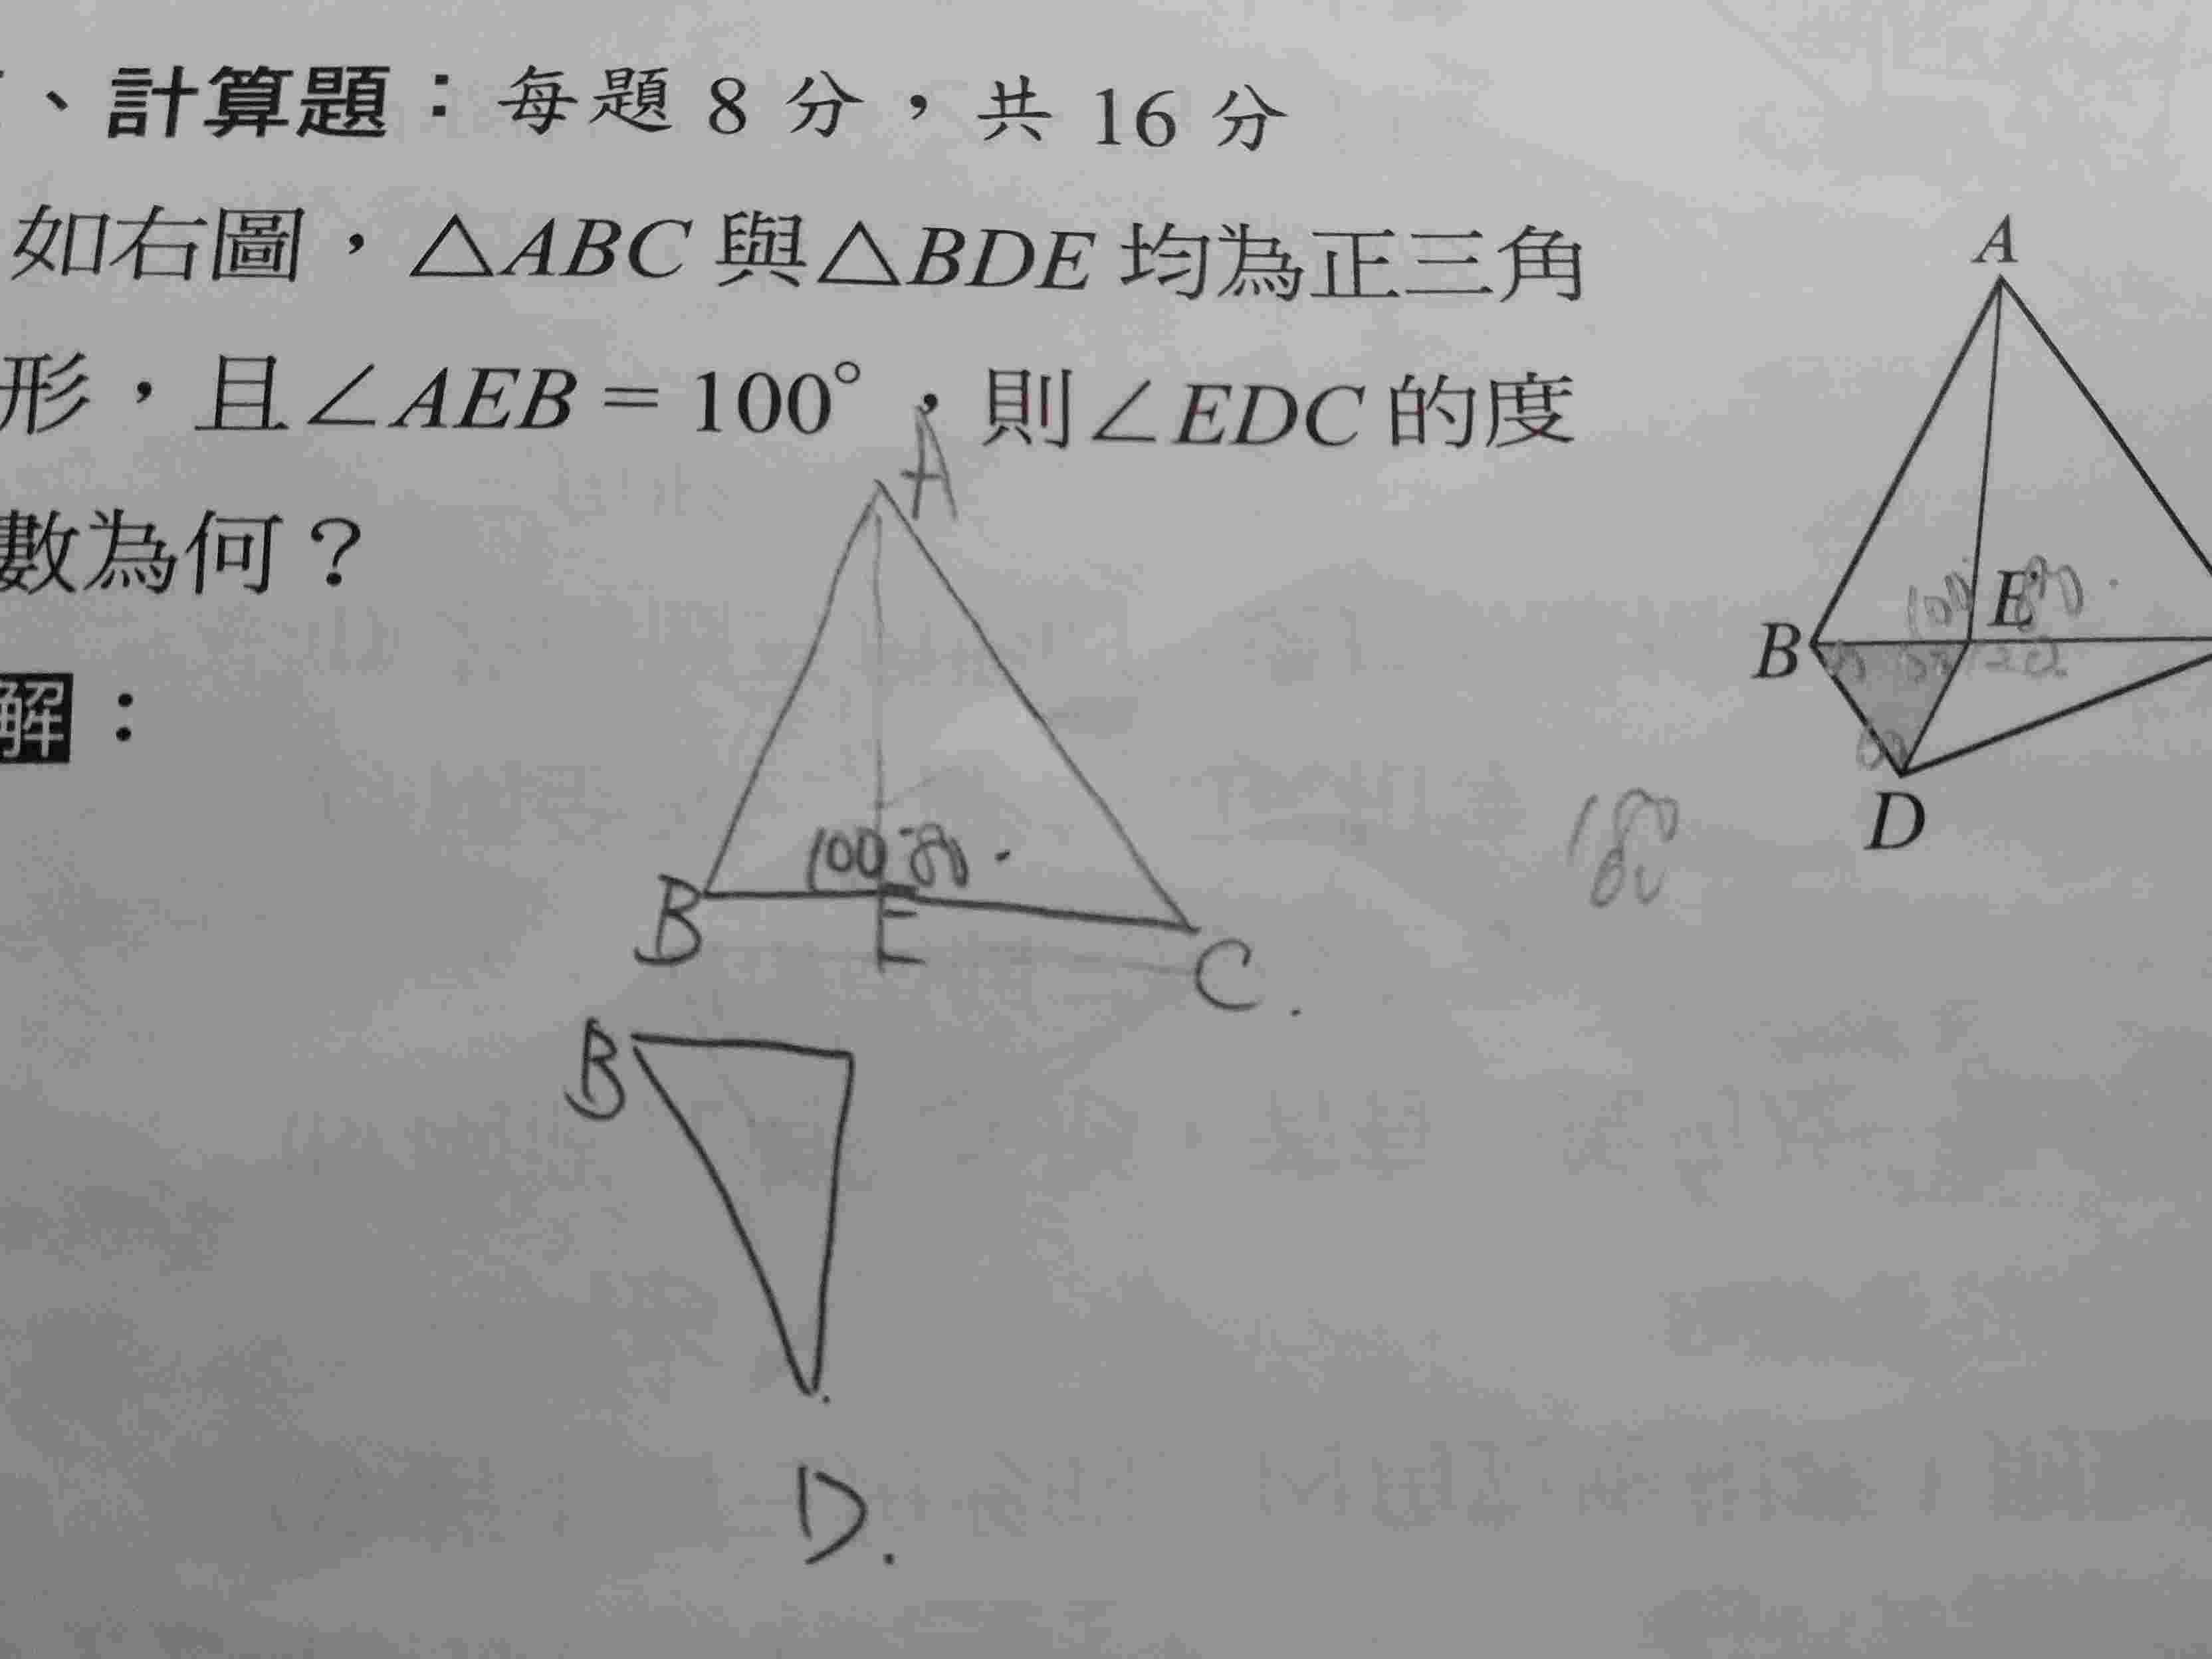 、計算題：每題 8 分，共 16 分
如右圖，△ABC 與△BDE 均為正三角
形，且∠AEB = 100°，則∠EDC 的度
數為何？
解：
A
B
E
D
100
80
A
100 80
B
E
C
180
60
B
D